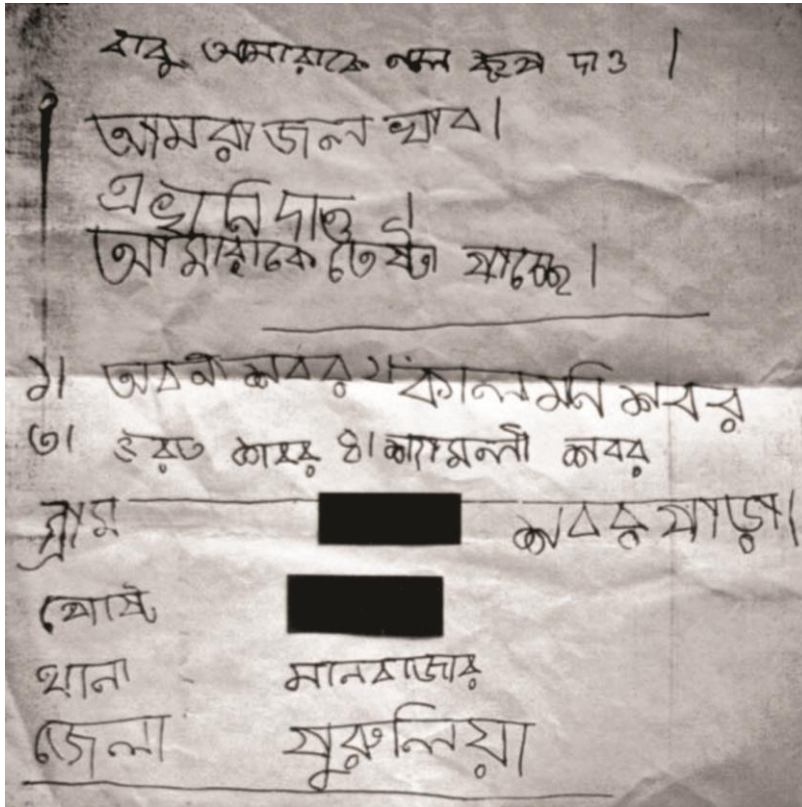 বাবু আমারাকে নল কূপ দাও ।
আমরা জল খাব।
এখানি দাও ।
আমারাকে তেষ্টা পাচ্ছে।
১। অবনী শবর ২। কালমনি শবর
৩। ভরত শবর ৪। শ্যামলী শবর
গ্রাম শবর পাড়া।
পোষ্ট
থানা মানবাজার
জেলা পুরুলিয়া